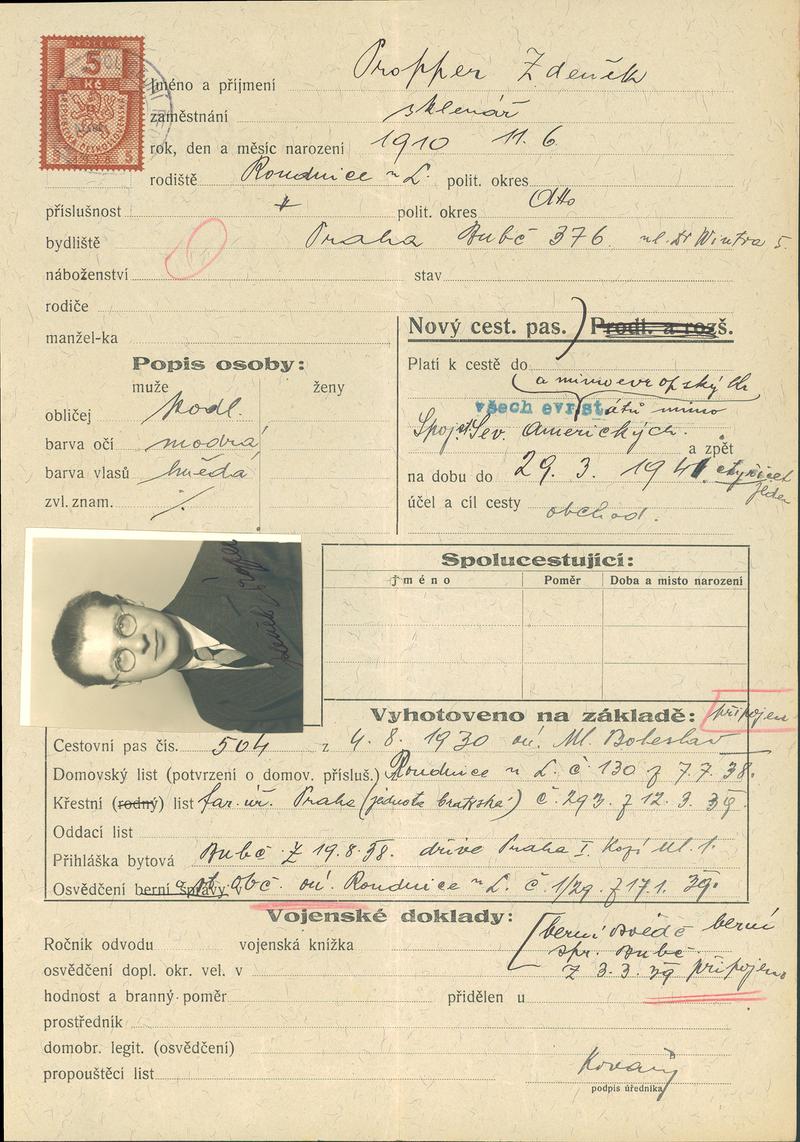 KOLEK
5
Kč
REPUBLIKA ČESKOSLOVENSKÁ
5 5
Jméno a příjmení Propper Zdeněk
zaměstnání sklenář
rok, den a měsíc narození 1910 11. 6.
rodiště Roudnice n L. polit. okres
příslušnost # polit. okres dtto
bydliště Praha Bubč 376. ul. Dr Wintra 5.
náboženství stav
rodiče
manžel-ka
Nový cest. pas. ) Prodl. a rozš.
Popis osoby:
muže ženy
obličej podl.
barva očí modrá
barva vlasů hnědá
zvl. znam. ·/.
Platí k cestě do
(a mimoevropských
všech evr. států mimo
Spoj. st. Sev. Amerických.
a zpět
na dobu do 29. 3. 1941. čtyřicet
jeden
účel a cíl cesty obchod.
Spolucestující:
Jméno Poměr Doba a místo narození
Vyhotoveno na základě: připojen
Cestovní pas čís. 504 z 4. 8. 1930 oú. Ml. Boleslav
Domovský list (potvrzení o domov. přísluš.) Roudnice n L. č. 130 z 7. 7. 38.
Křestní (rodný) list far. úř. Praha (jednota bratrská) č. 293. z 12. 3. 39.
Oddací list
Přihláška bytová Bubč z 19. 8. 38. dříve Praha I. Kozí ul. 1.
Osvědčení berní správy obč. oú. Roudnice n L. č. 1/29. z 17. 1. 39.
Vojenské doklady:
Ročník odvodu vojenská knížka
osvědčení dopl. okr. vel. v
hodnost a branný poměr přidělen u
prostředník
domobr. legit. (osvědčení)
propouštěcí list
[berní osvědč. berní
spr. Bubč
z 3. 3. 39 připojeno
Kovařý
podpis úředníka